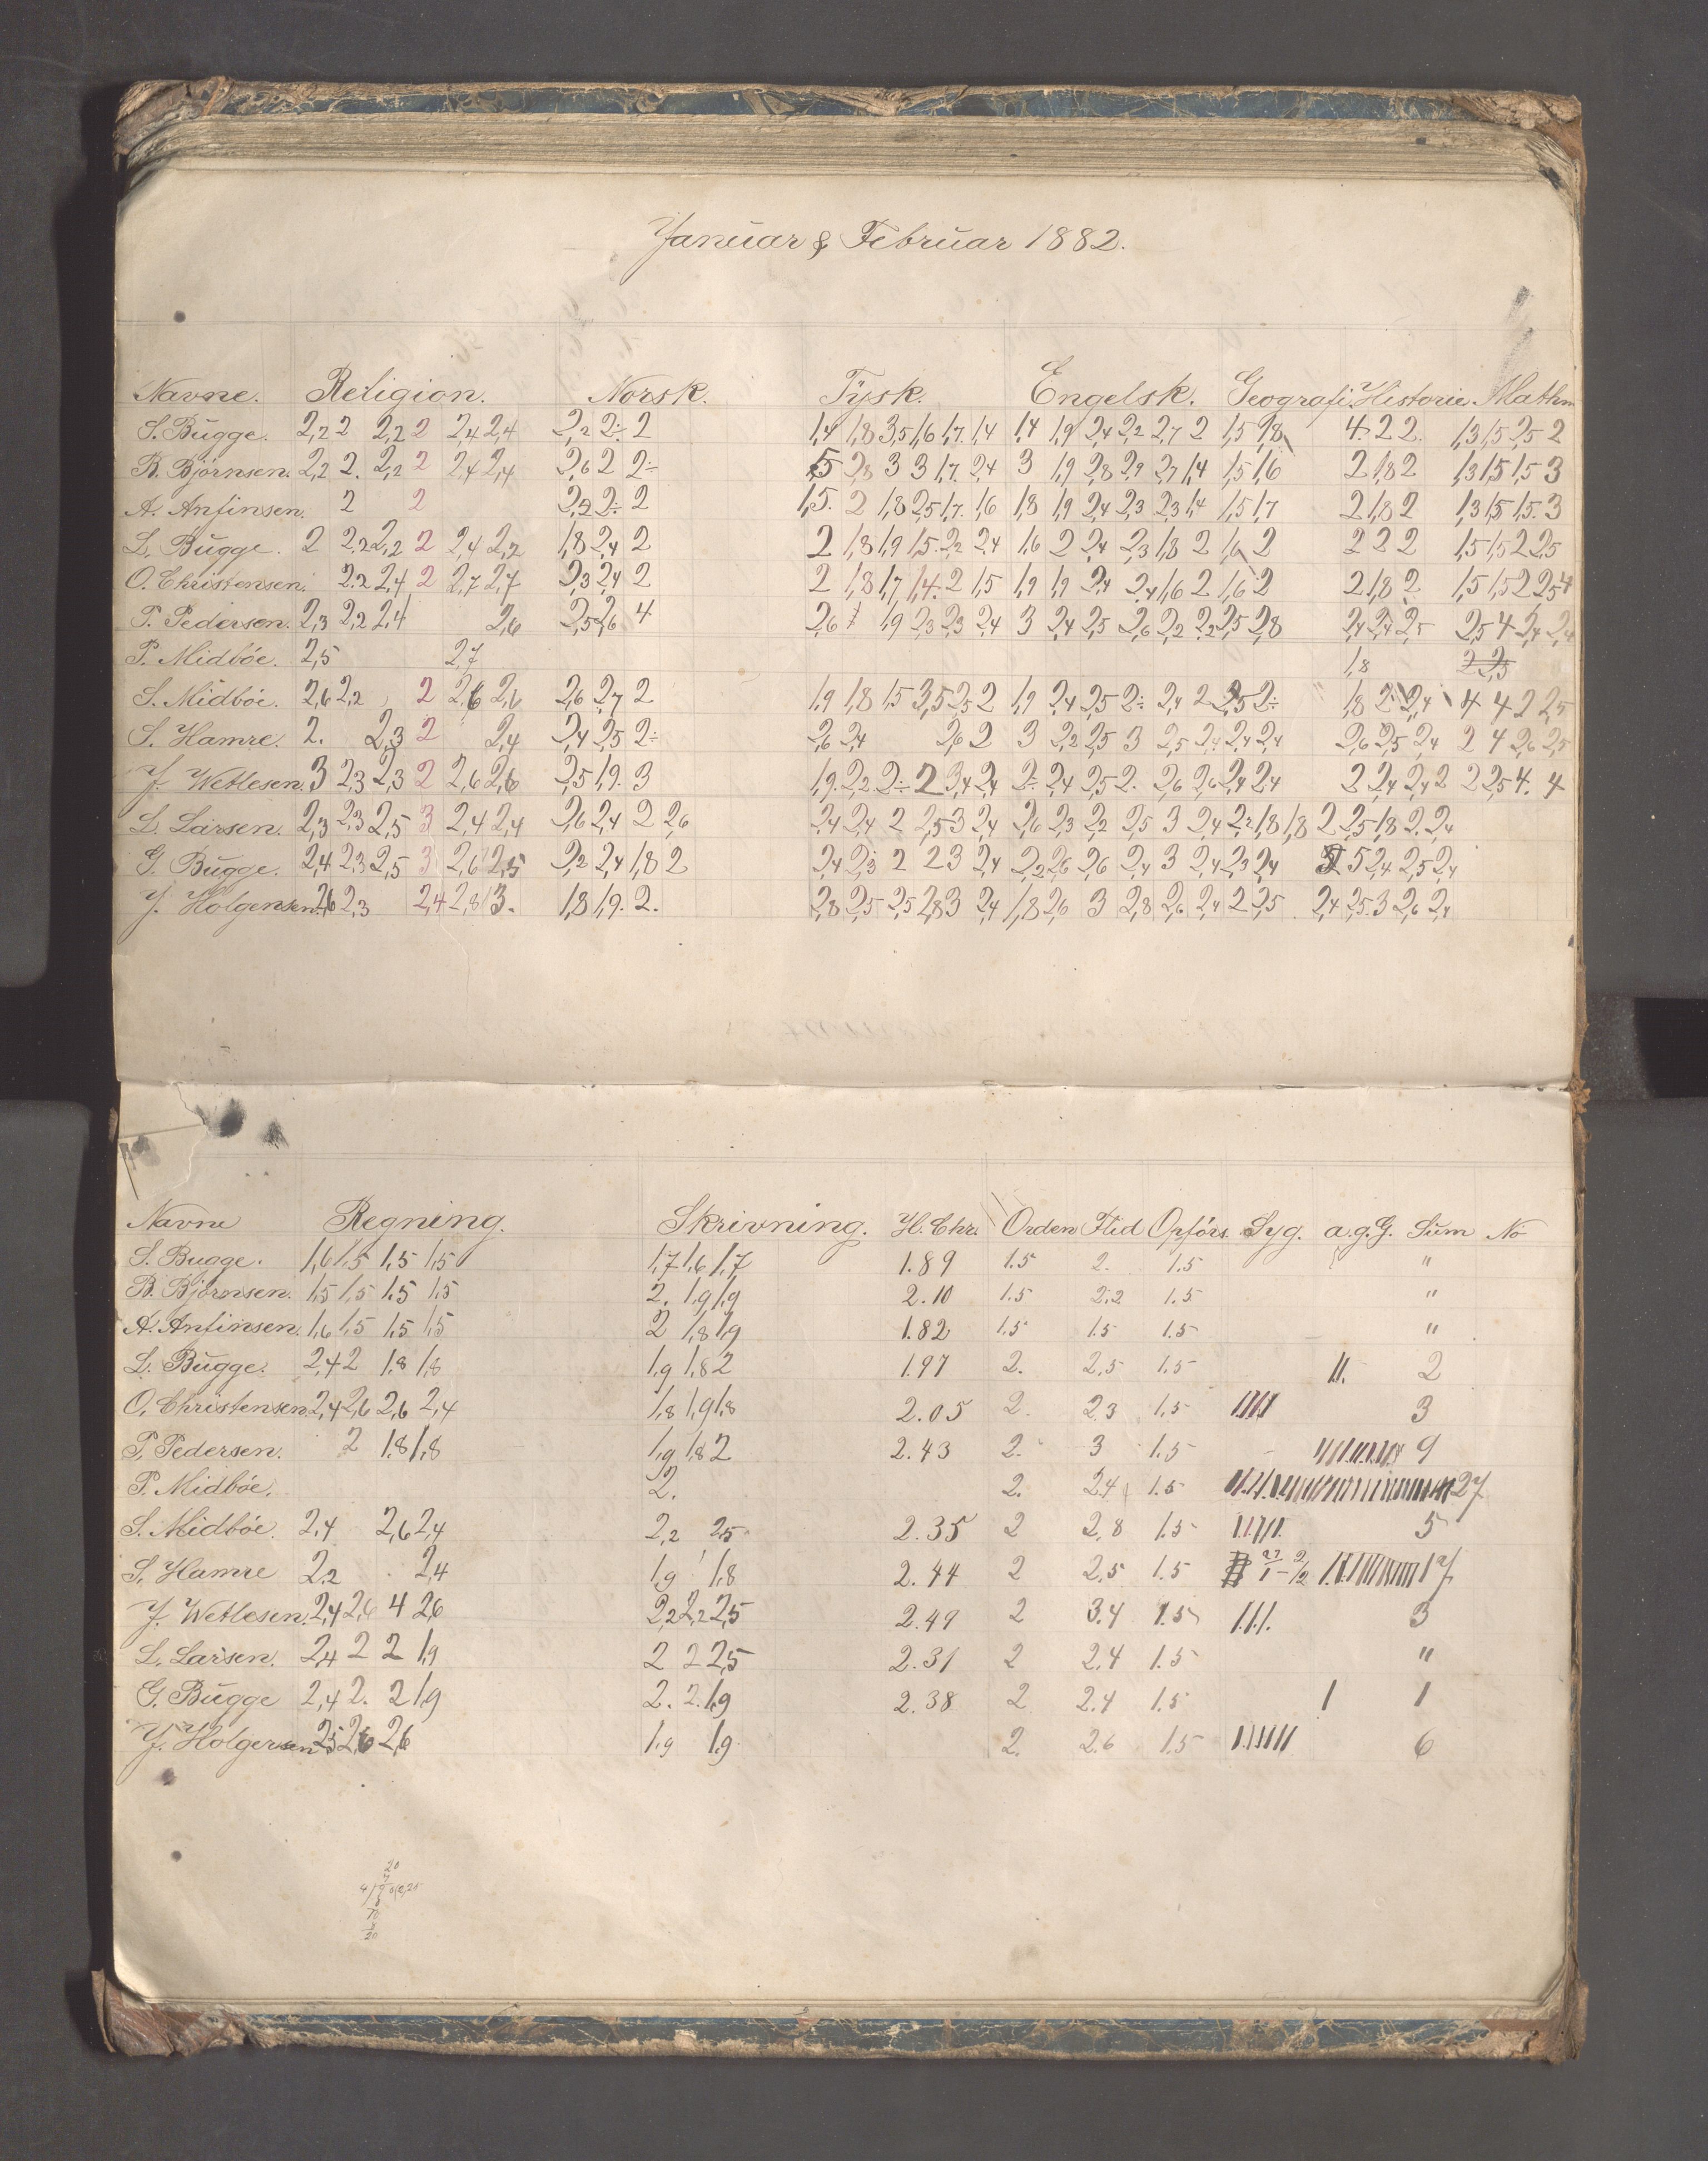 Januar & Februar 1882.
Navne. Religion. Norsk. Tysk. Engelsk. Geografi. Historie. Mathm
S. Bugge. 2,2 2 2,2 2 2,4 2,4 2,2 2÷ 2 1,4 1,8 3,5 1,6 1,7. 1,4 1,4 1,9 2,4 2,2 2,7 2 1,5 1,8 4. 2 2. 1,3 1,5 2,5 2
B. Björnsen. 2,2 2. 2,2 2 2,4 2,4 2,6 2 2÷ 5 2,8 3 3 1,7. 2,4 3 1,9 2,8 2,9 2,7 1,4 1,5 1,6 2 1,8 2 1,3 1,5 1,5 3
A. Anfinsen. 2 2 2,2 2÷ 2 1,5. 2 1,8 2,5 1,7. 1,6 1,8 1,9 2,4 2,3 2,3 1,4 1,5 1,7 2 1,8 2 1,3 1,5 1,5. 3
L. Bugge. 2 2,2 2,2 2 2,4 2,2 1,8 2,4 2 2 1,8 1,9 1,5. 2,2 2,4 1,6 2 2,4 2,3 1,8 2 1,6 2 2 2 2 1,5 1,5 2 2,5
O. Christensen. 2.2 2,4 2 2,7 2,7 2,3 2,4 2 2 1,8 1,7 1,4. 2 1,5 1,9 1,9 2,4 2,4 1,6 2 1,6 2 2 1,8 2 1,5 1,5 2 2,5 4
P. Pedersen. 2,3 2,2 2,4 2,6 2,5 2,6 4 2,6 1,9 2,3 2,3 2,4 3 2,4 2,5 2,6 2,2 2,2 2,5 2,8 2,4 2,4 2,5 2,5 4 2,4 2,4
P. Midböe. 2,5 2,7 1,8 2 2,3
S. Midböe. 2,6 2,2 2 2,6 2,6 2,6 2,7 2 1,9 1,8 1,5 3,5 2,5 2 1,9 2,4 2,5 2÷ 2,4 2 2,5 2÷ 1,8 2 2,4 4 4 2 2,5
S. Hamre. 2. 2,3 2 2,4 2,4 2,5 2÷ 2,6 2,4 2,6 2 3 2,2 2,5 3 2,5 2,4 2,4 2,4 2,6 2,5 2,4 2 4 2,6 2,5
J. Wetlesen. 3 2,3 2,3 2 2,6 2,6 2,5 1,9. 3 1,9. 2,2 2÷ 2 3,4 2,4 2÷ 2,4 2,5 2. 2,6 2,6 2,4 2,4 2 2,4 2,4 2 2 2,5 4. 4
L. Larsen. 2,3 2,3 2,5 3 2,4 2,4 2,6 2,4 2 2,6 2,4 2,4 2 2,5 3 2,4 2,6 2,3 2,2 2,5 3 2,4 2,2 1,8 1,8 2 2,5 1,8 2. 2,4
G. Bugge. 2,4 2,3 2,5 3 2,6 2,5 2,2 2,4 1,8 2 2,4 2,3 2 2 3 2,4 2,2 2,6 2,6 2,4 3 2,4 2,3 2,4 5 2,4 2,5 2,4
J. Holgersen. 2,6 2,3 2,4 2,8 3. 1,8 1,9. 2. 2,8 2,5 2,5 2,8 3 2,4 1,8 2,6 3 2,8 2,6 2,4 2 2,5 2,4 2,5. 3 2,6 2,4
Navne Regning. Skrivning. H. Chr. Orden Flid Opförs. Syg. a.g.G. Sum No
S. Bugge. 1,6 1,5 1,5 1,5 1,7 1,6 1,7 1.89 1.5 2. 1.5 "
B. Björnsen. 1,5 1,5 1.5 1,5 2. 1,9 1,9 2.10 1.5 2.2 1.5 "
A. Anfinsen. 1,6 1,5 1,5 1,5 2 1,8 1,9 1.82 1.5 1.5 1.5 "
L. Bugge. 2,4 2 1,8 1,8 1,9 1,8 2 1.97 2. 2,5 1.5 11. 2
O. Christensen 2,4 2,6 2,6 2,4 1,8 1,9 1,8 2.05 2. 2.3 1.5 3
P. Pedersen. 2 1.8 1,8 1,9 1,8 2 2.43 2. 3 1.5 9
P. Midböe. 2. 2. 2.4 1.5 27
S. Midböe. 2,4 2,6 2,4 2,2 2,5 2.35 2 2,8 1.5 5
S. Hamre 2,2 2,4 1,9 1,8 2.44 2 2,5 1.5 17
J. Wetlesen. 2,4 2,6 4 2,6 2,2 2,2 2,5 2.49 2 3.4 1.5 1.1.1. 3
L. Larsen. 2,4 2 2 1,9 2 2 2,5 2.31 2 2.4 1.5 "
G. Bugge 2,4 2. 2 1,9 2. 2. 1,9 2.38 2 2.4 1.5 1 1
J. Holgersen 2,5 2,6 2,6 1,9 1,9 2. 2.6 1.5 6